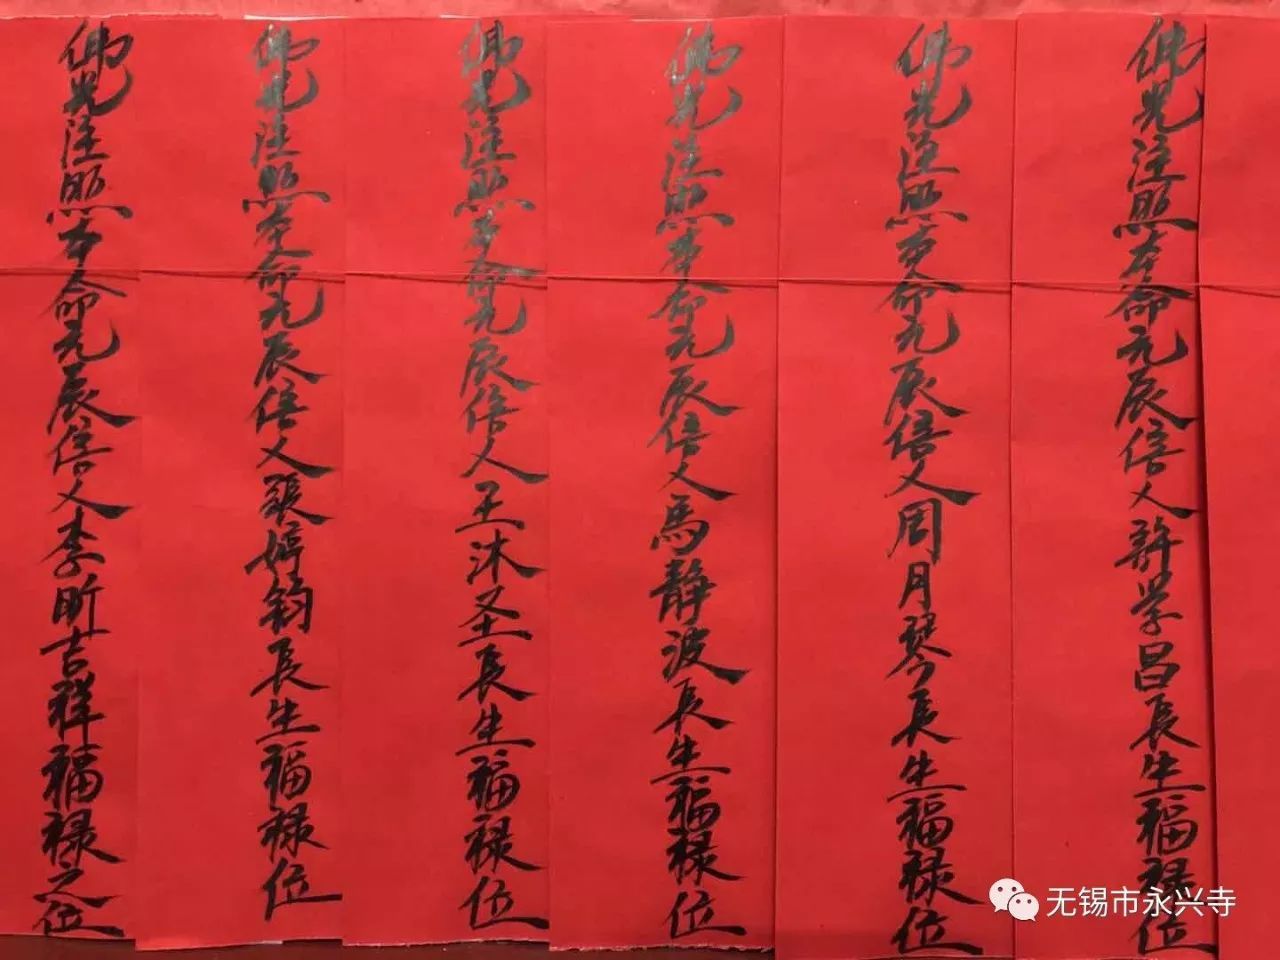 佛光注照本命元辰信人許学昌長生福禄位
佛光注照本命元辰信人周月琴長生福禄位
佛光注照本命元辰信人馬静波長生福禄位
佛光注照本命元辰信人王沐圣長生福禄位
佛光注照本命元辰信人張婷鈞長生福禄位
佛光注照本命元辰信人李昕吉祥福禄之位
无锡市永兴寺